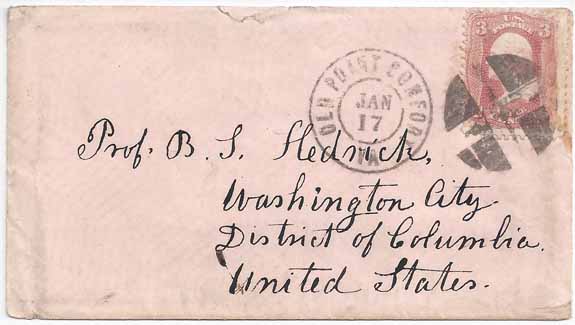 3 U.S. POSTAGE 3
OLD POINT COMFORT
JAN
17
VA
Prof. B. S. Hedrick,
Washington City
District of Columbia.
United States.